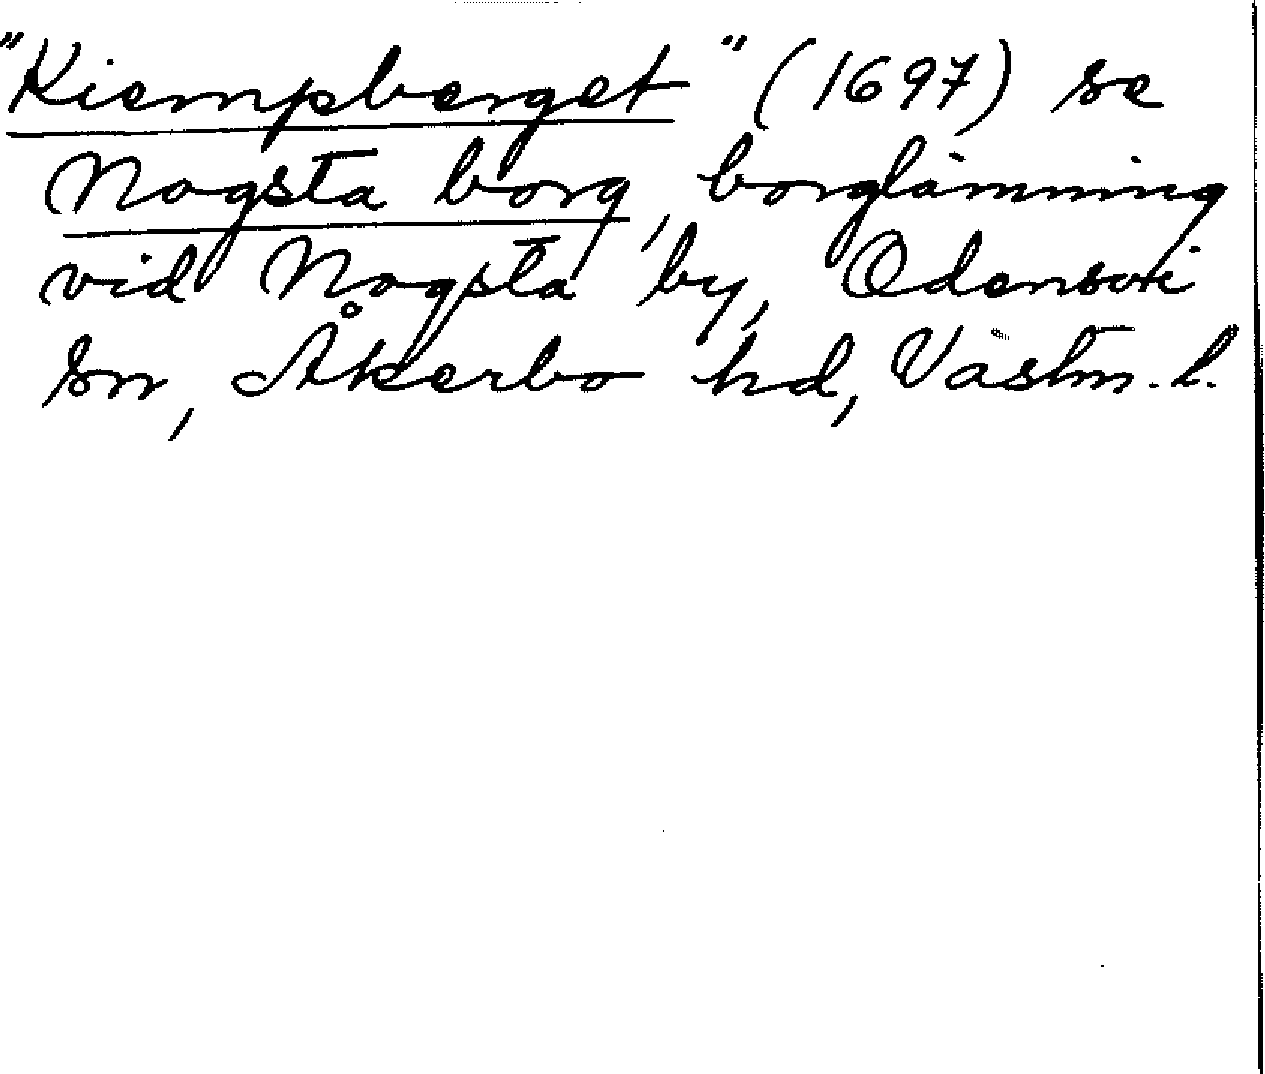 "Kiempberget" (1697) se
Nogsta borg, borglämning
vid Nogsta by, Odensvi
sn, Åkerbo hd, Västm. l.